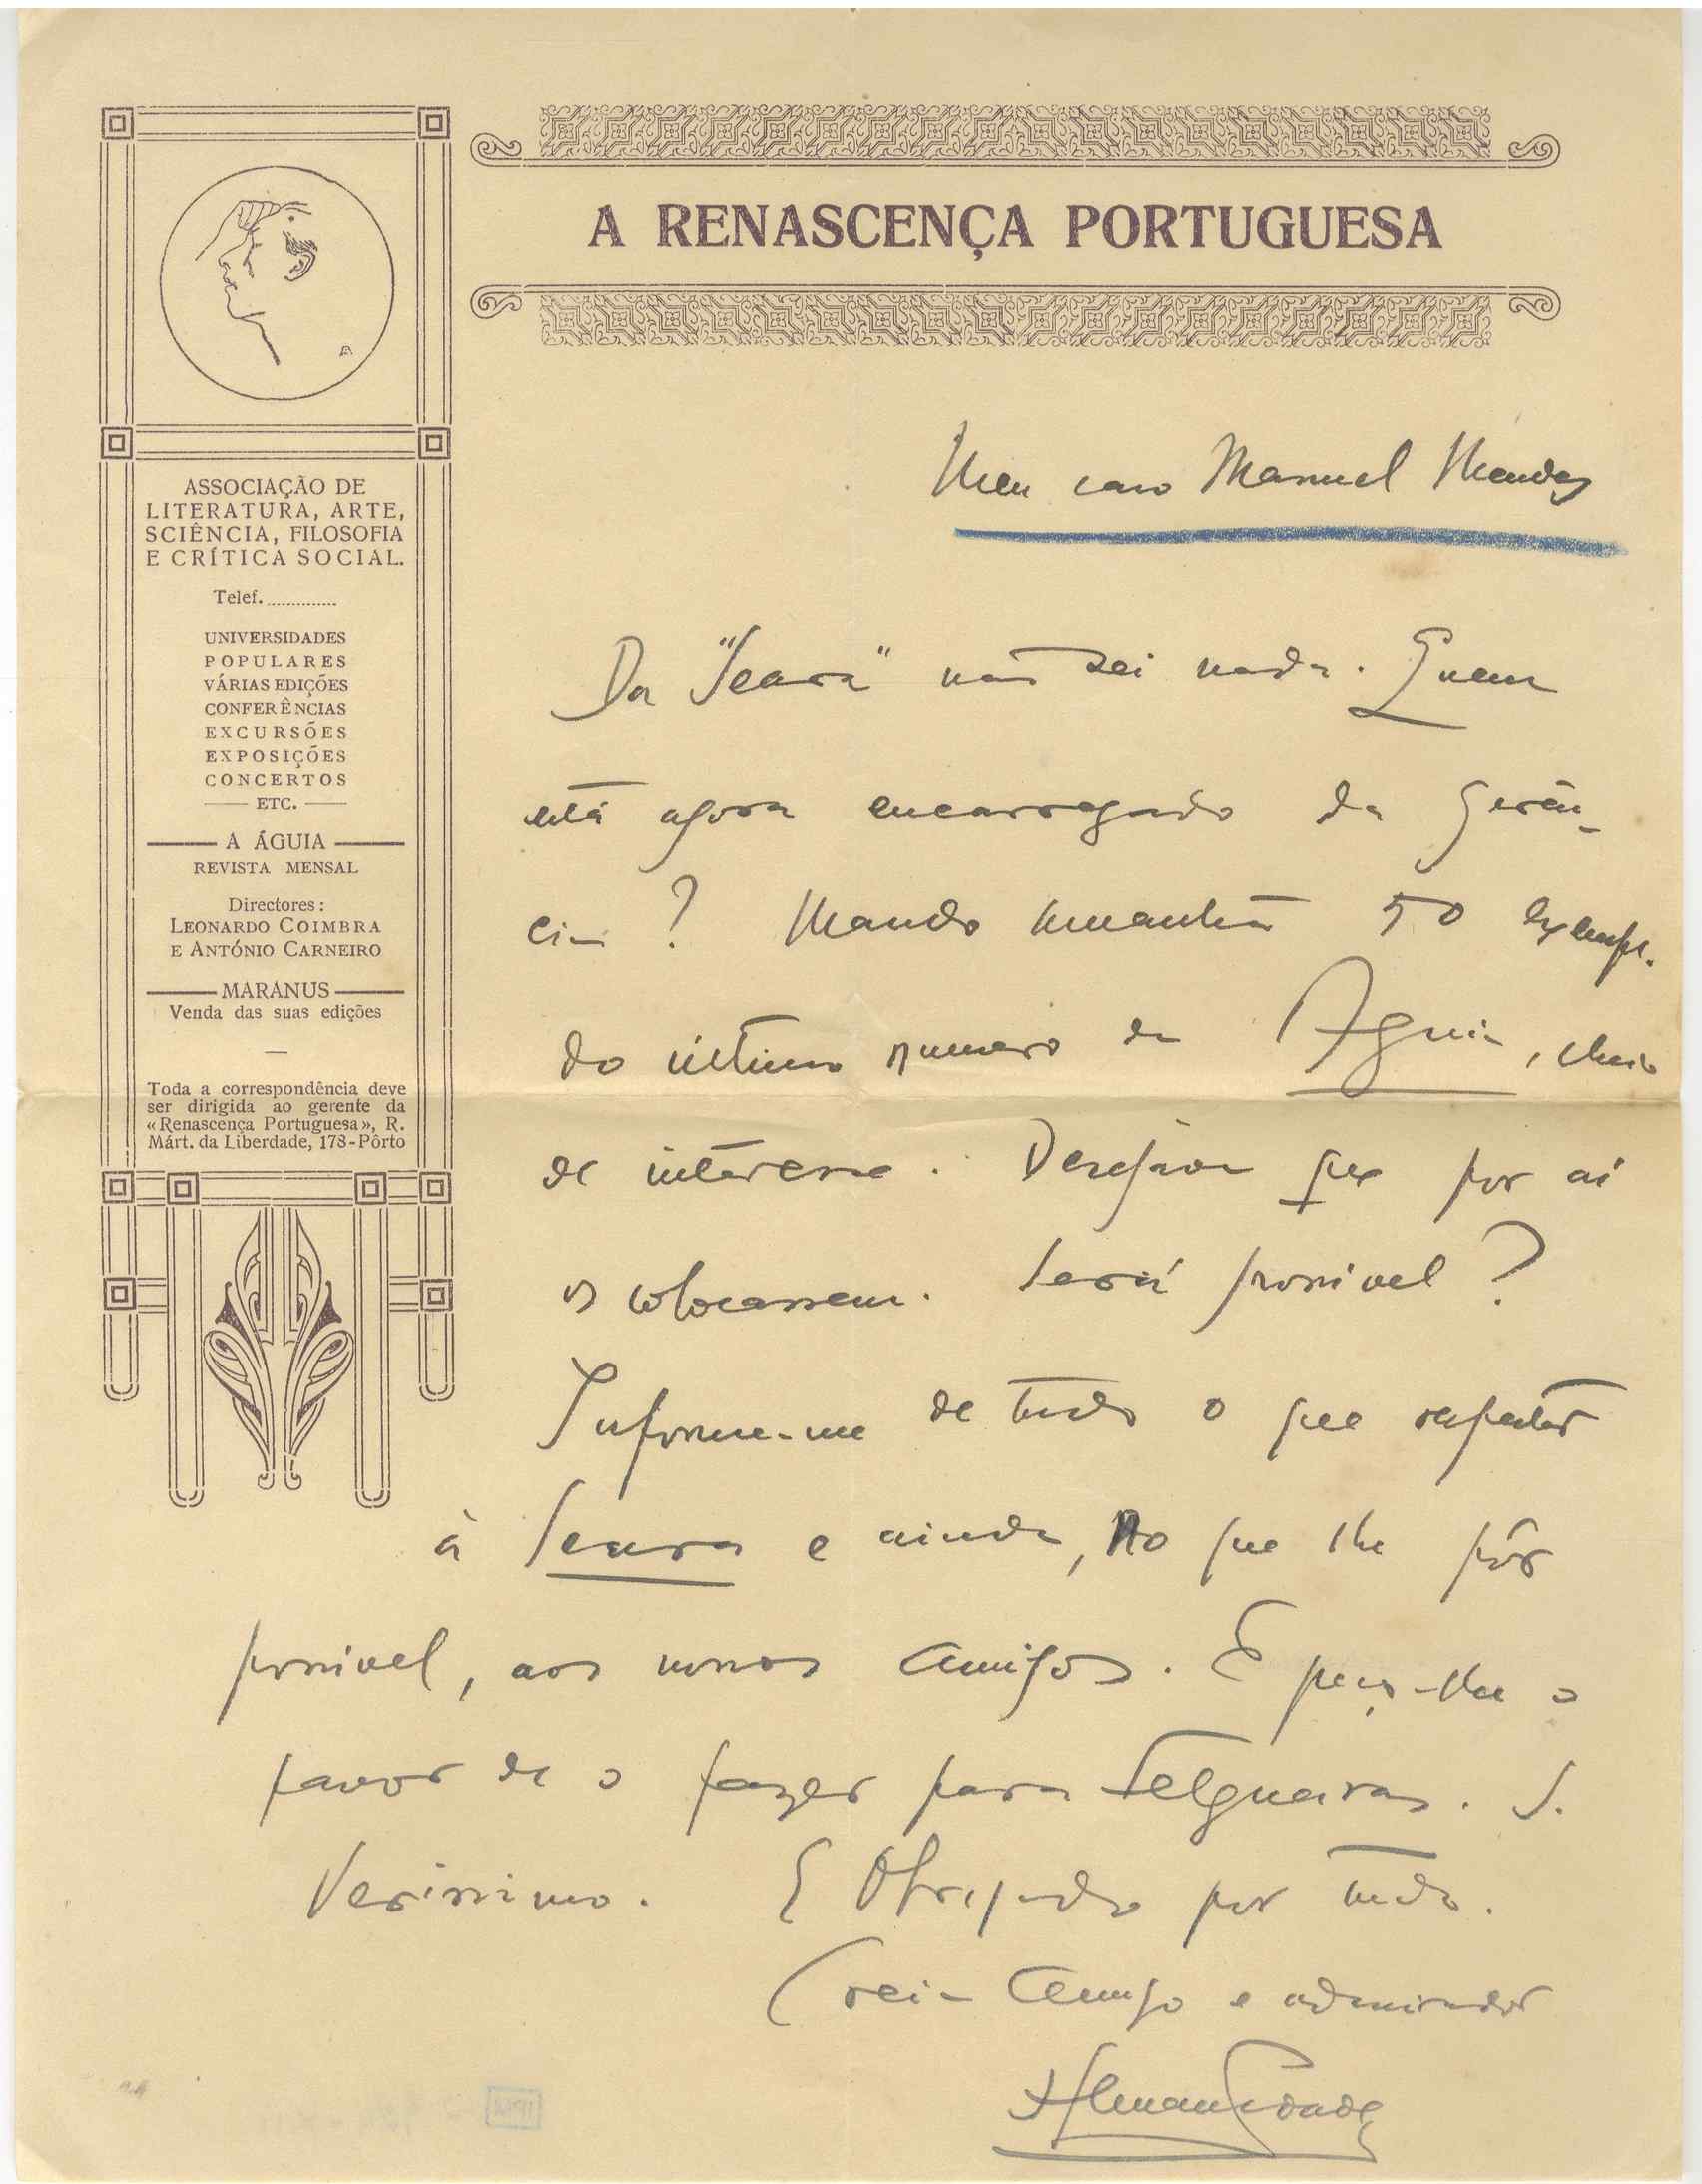 A RENASCENÇA PORTUGUESA
ASSOCIAÇÃO DE
LITERATURA, ARTE,
SCIÊNCIA, FILOSOFIA
E CRÍTICA SOCIAL.
Telef..............
UNIVERSIDADES
POPULARES
VÁRIAS EDIÇÕES
CONFERÊNCIAS
EXCURSÕES
EXPOSIÇÕES
CONCERTOS
ETC.
A ÁGUIA
REVISTA MENSAL
Directores:
LEONARDO COIMBRA
E ANTÓNIO CARNEIRO
MARÁNUS
Venda das suas edições
Toda a correspondência deve
ser dirigida ao gerente da
«Renascença Portuguesa», R.
Márt. da Liberdade, 178-Pôrto
Meu caro Manuel Mendes
Da "Seara" não sei nada. Quem
está agora encarregado da gerên-
cia? Mando amanhã 50 exempl.
do último numero da Aguia, cheio
de interesse. Desejava que por aí
os colocassem. Será possivel?
Informe-me de tudo o que respeitar
à Seara e ainda, no que lhe fôr
possivel, aos nossos amigos. E peço-lhe o
favor de o fazer para Felgueiras. S.
Verissimo. E Obrigado por tudo.
Creia amigo e admirador
Hernani Cidade